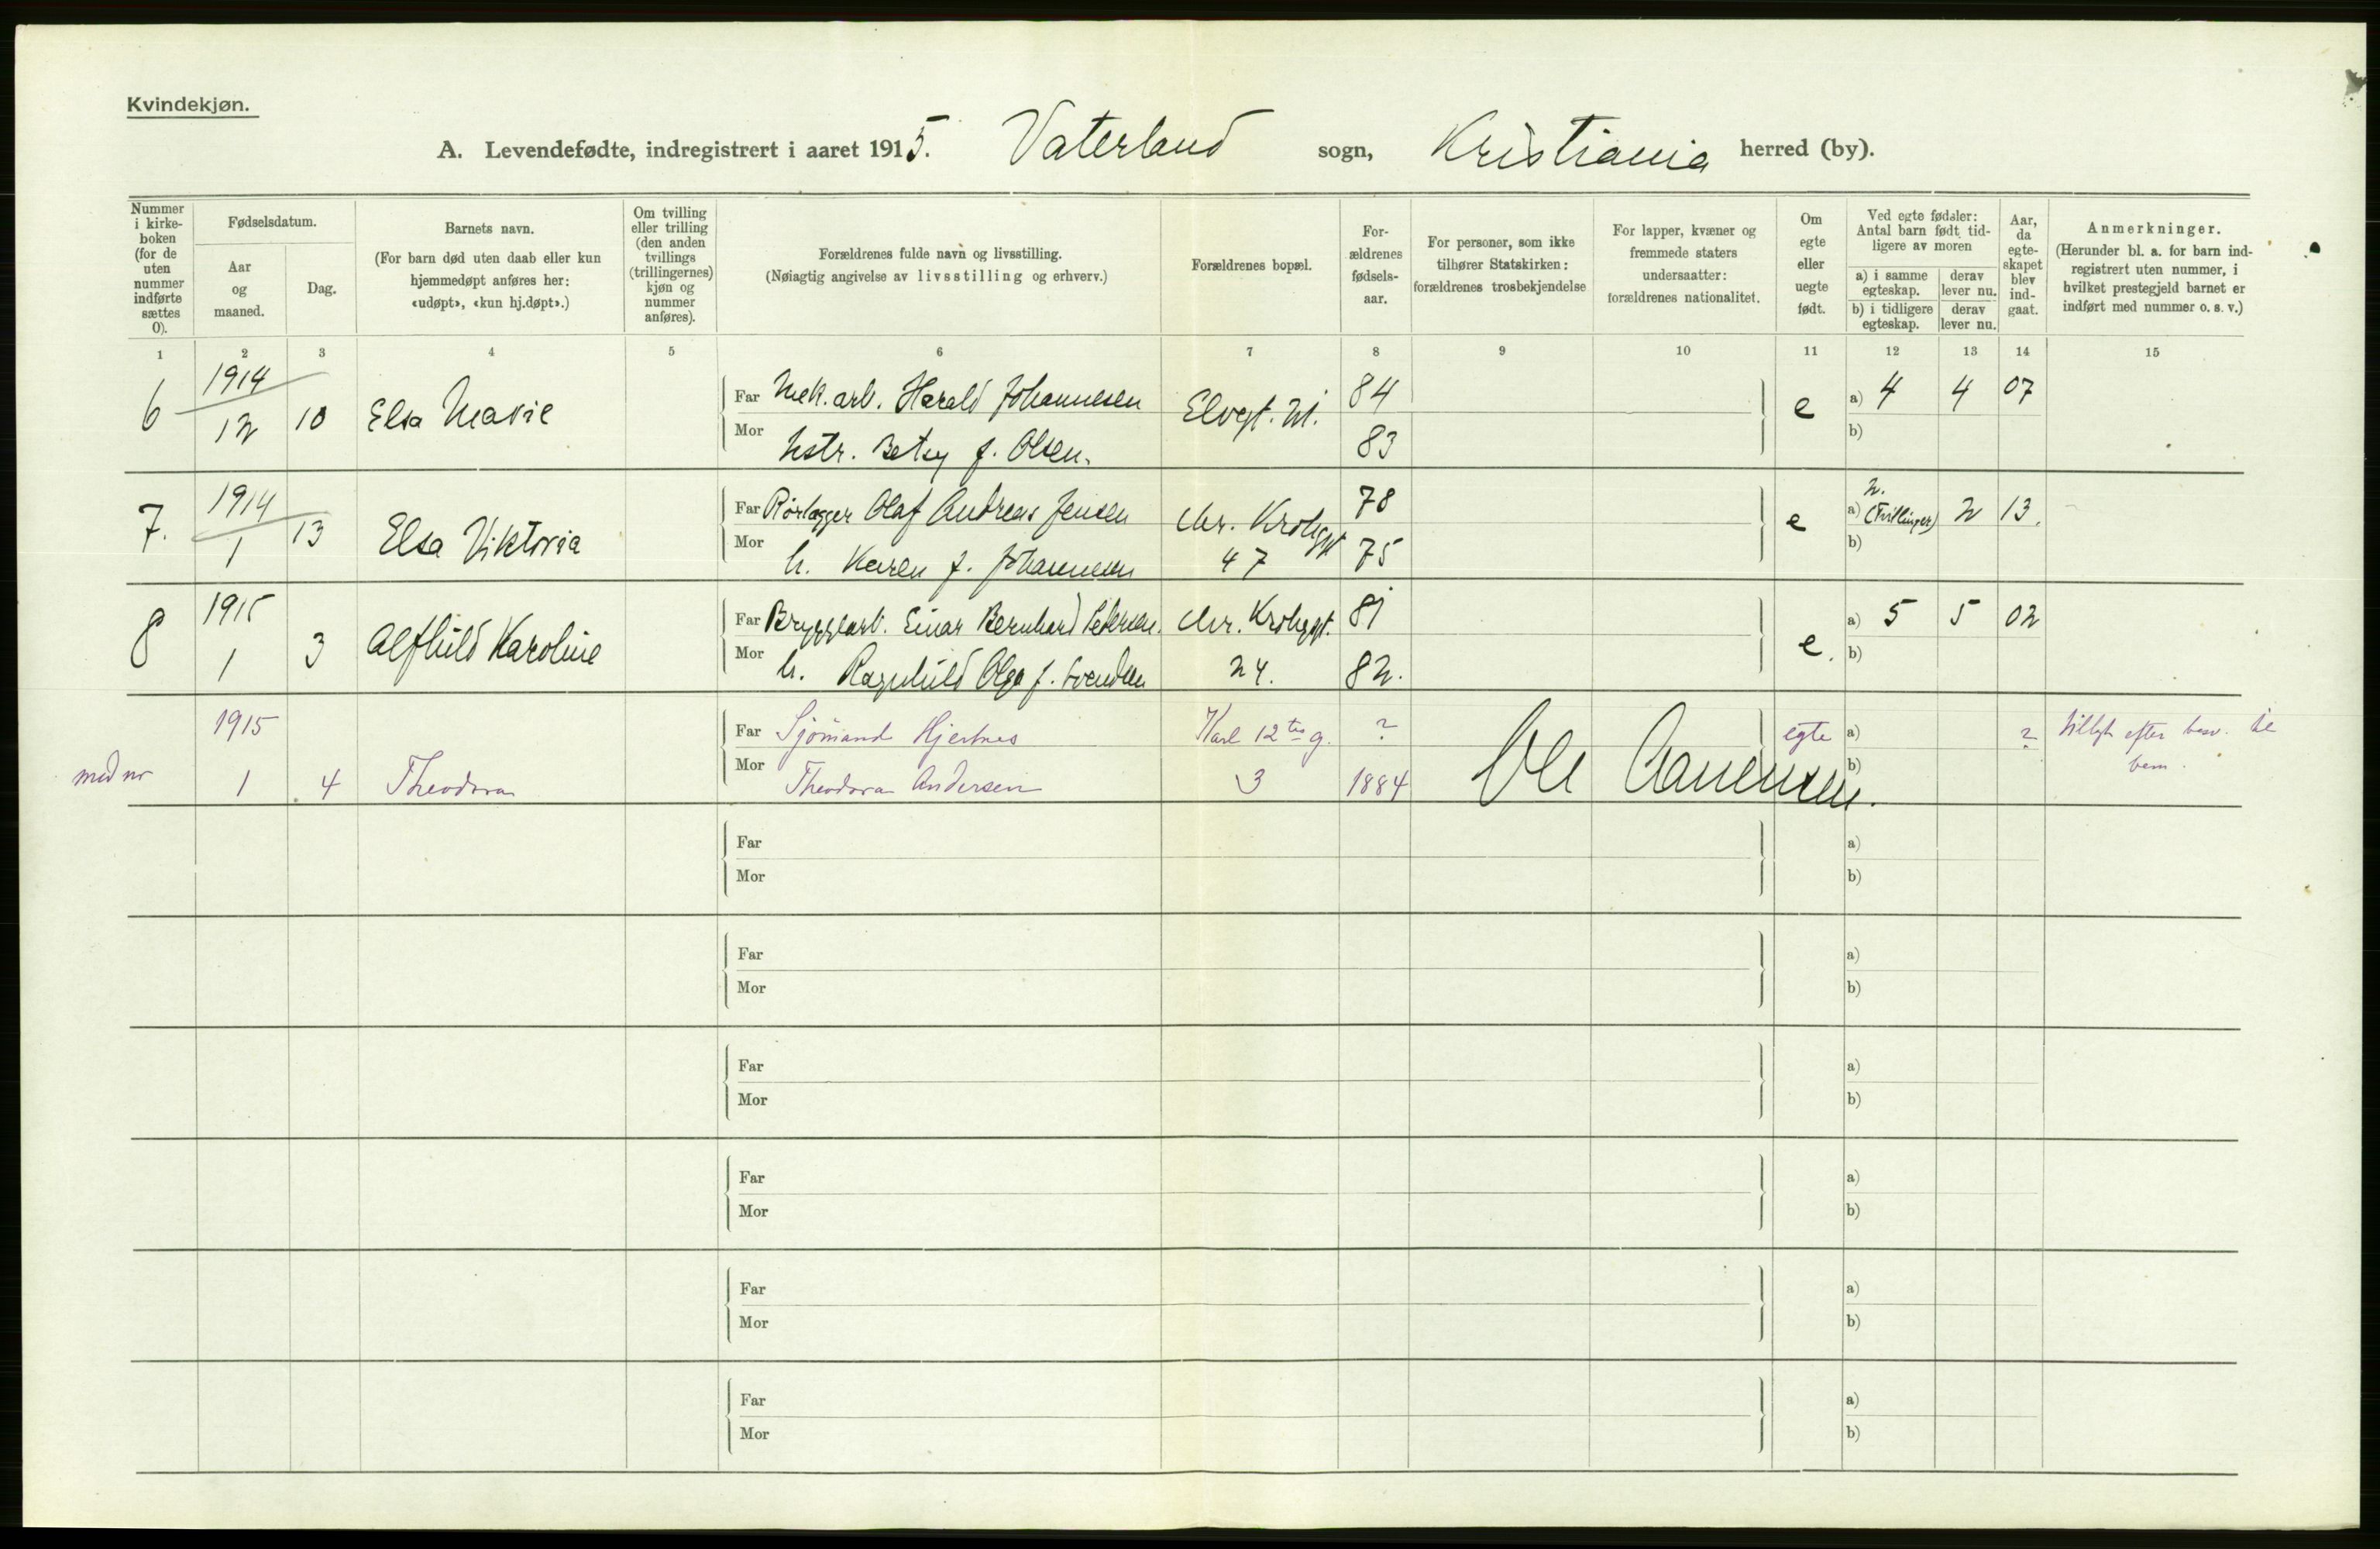 Kvindekjøn.
A. Levendefødte, indregistrert i aaret 1915. Vaterland sogn, Kristiania herred (by).
Nummer i kirke-boken (for de uten nummer indførte sættes 0).
Fødselsdatum.
Aar og maaned.
Dag.
Barnets navn.
(For barn død uten daab eller kun hjemmedøpt anføres her: «udøpt», «kun hj.døpt».)
Om tvilling eller trilling (den anden tvillings (trillingernes) kjøn og nummer anføres).
Forældrenes fulde navn og livsstilling.
(Nøiagtig angivelse av livsstilling og erhverv.)
Forældrenes bopæl.
For-ældrenes fødsels-aar.
For personer, som ikke tilhører Statskirken: forældrenes trosbekjendelse
For lapper, kvæner og fremmede staters undersaatter: forældrenes nationalitet.
Om egte eller uegte født.
Ved egte fødsler: Antal barn født tid-ligere av moren
a) i samme egteskap.
derav lever nu.
b) i tidligere egteskap.
derav lever nu.
Aar, da egte-skapet blev ind-gaat.
Anmerkninger.
(Herunder bl. a. for barn ind-registrert uten nummer, i hvilket prestegjeld barnet er indført med nummer o. s. v.)
1 2 3 4 5 6 7 8 9 10 11 12 13 14 15
1914
Far Mek. arb. Harald Johannesen 84 a) 4 4 07
6 12 10 Elsa Marie Elvegt. 21. e
Mor Hstr. Betsy f. Olsen. 83 b)
1914 2.
Far Rørlægger Olaf Andreas Jensen Chr. Krohgsgt 78 a) (Tvillinger) 2 13.
7. 1 13 Elsa Viktoria e
Mor h. Karen f. Johannesen 47 75 b)
1915
Far Bryggearb. Einar Bernhard Petersen. Chr. Krohgsgt. 81 a) 5 5 02
8 1 3 Alfhild Karoline e.
Mor h. Ragnhild Olga f. Svendsen 24. 82. b)
1915 Far Sjömand Hjertnes Karl 12tes g. ? egte a) ? efter
med nr 1 4 Theodora Mor Theodora Andersen 3 1884 Ole b)
Far a)
Mor b)
Far a)
Mor b)
Far a)
Mor b)
Far a)
Mor b)
Far a)
Mor b)
Far a)
Mor b)